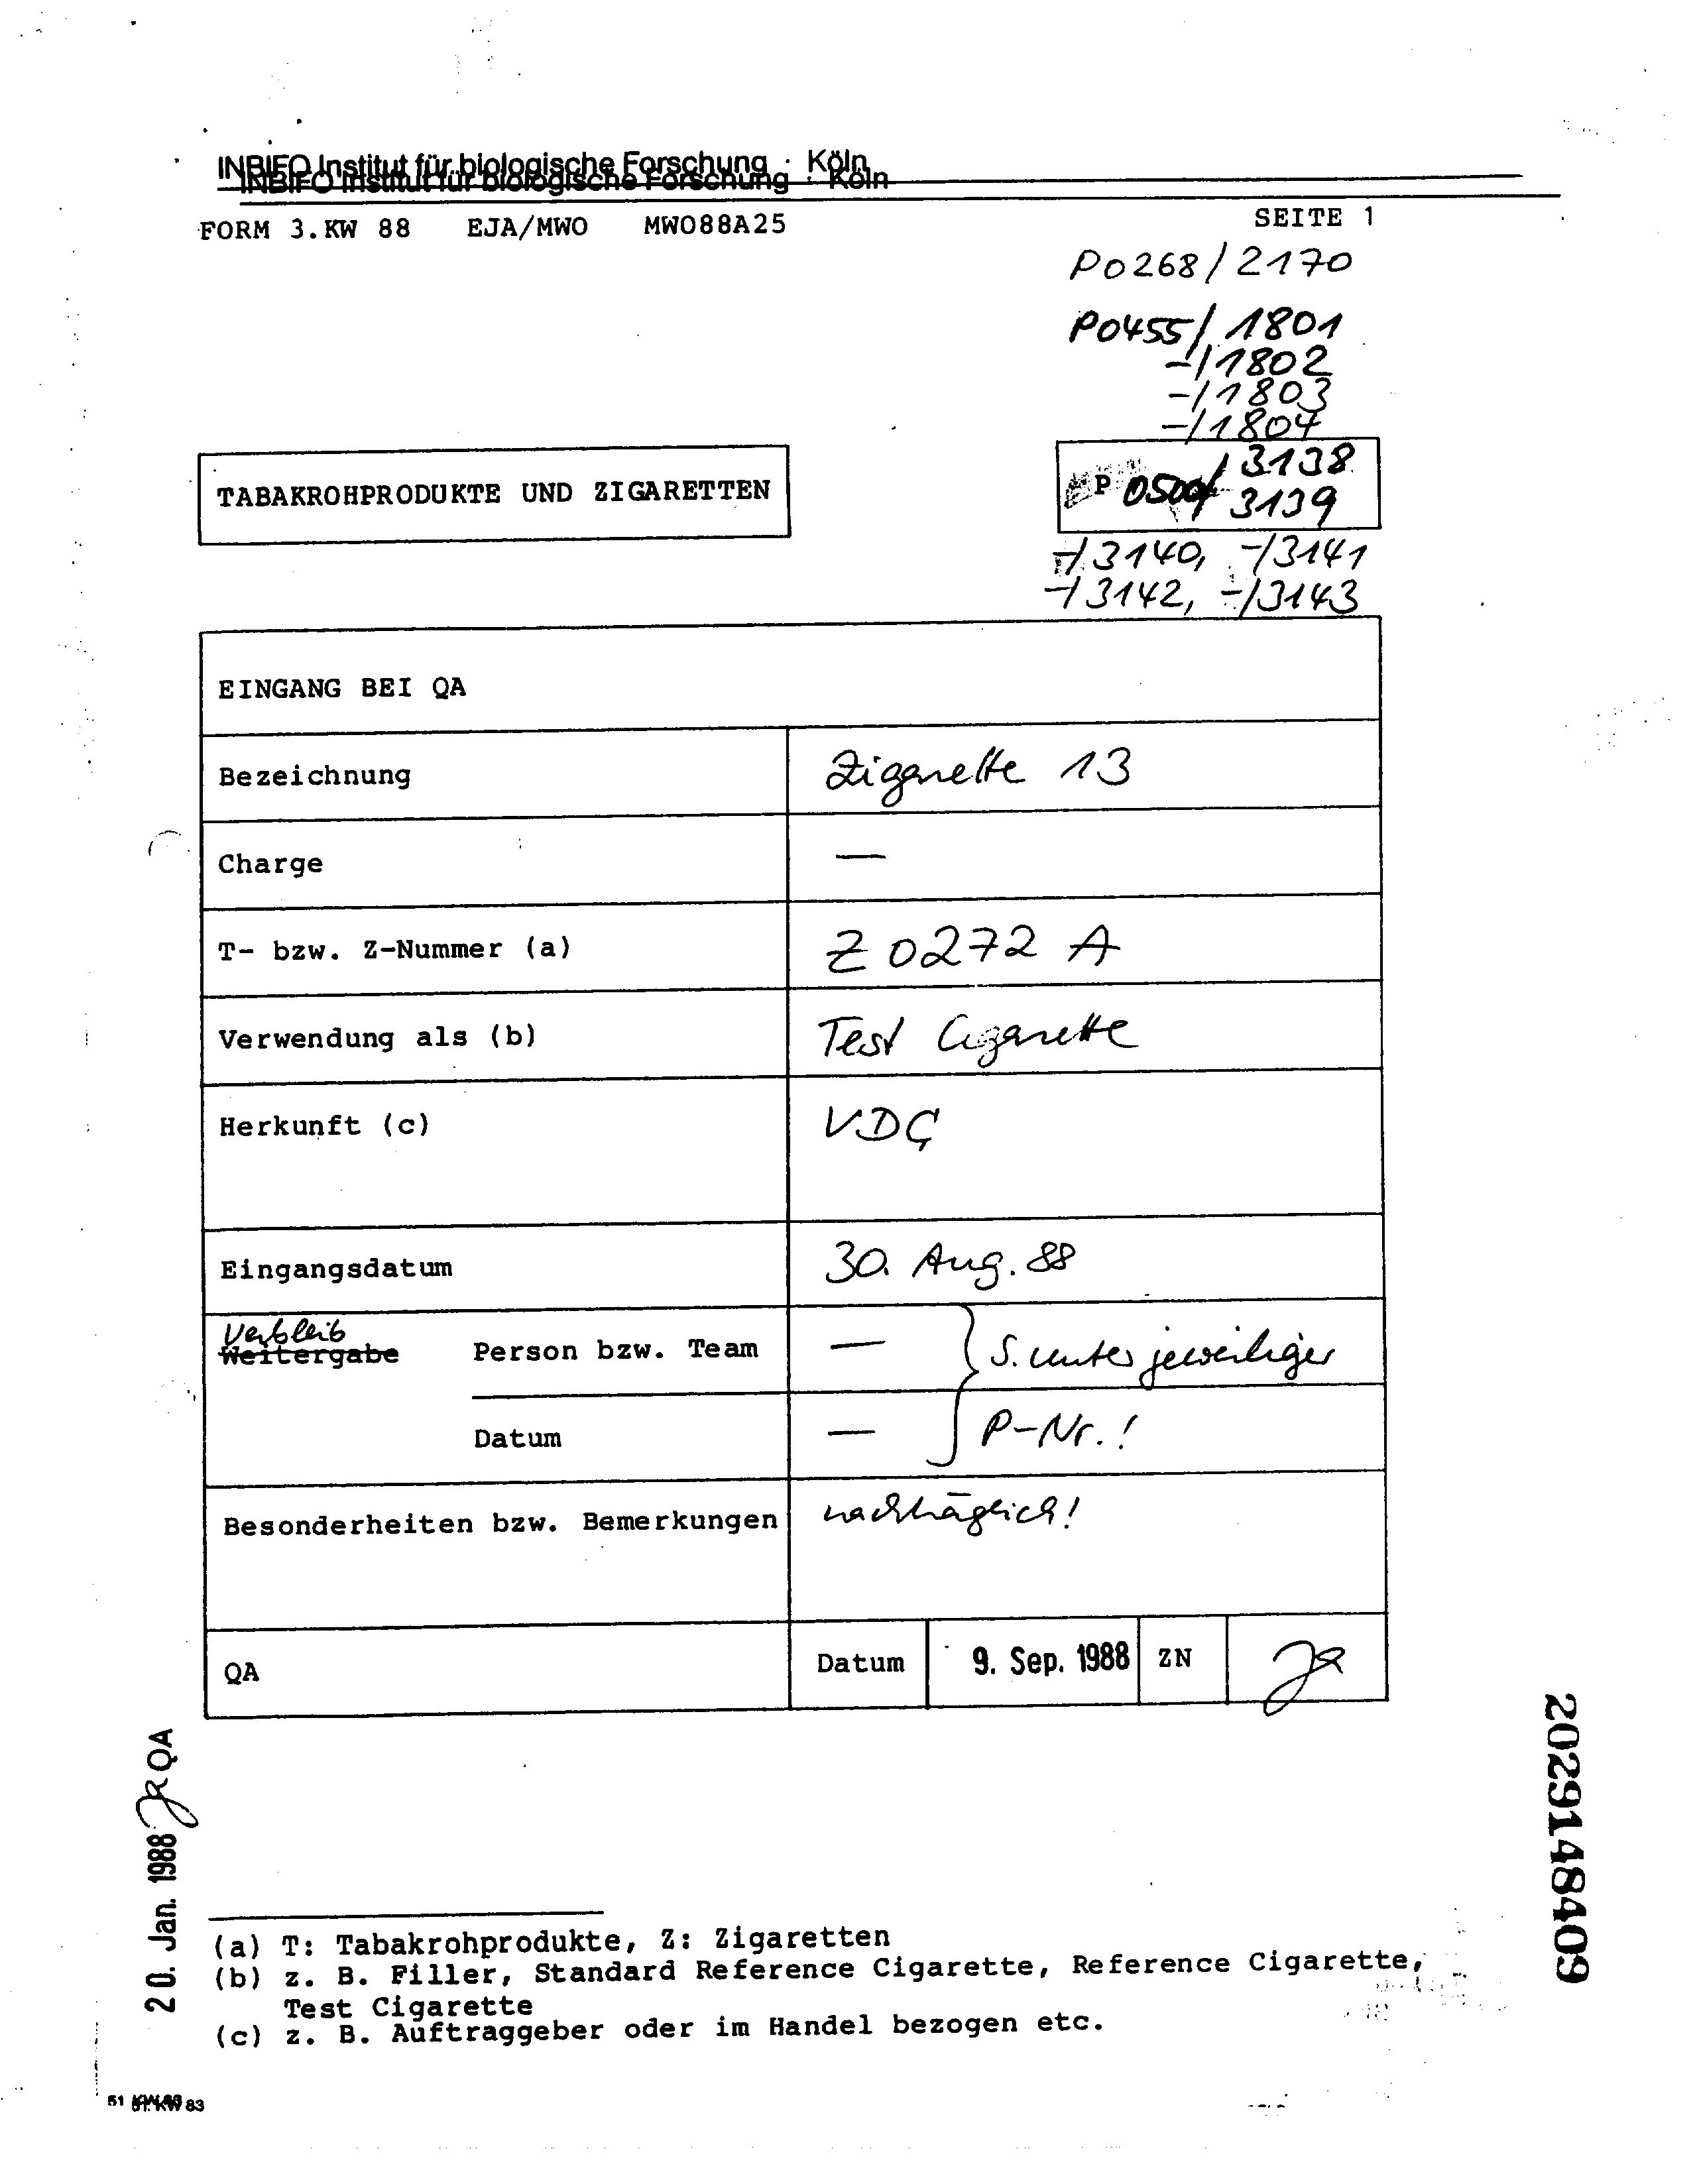 INBIFO Institut für biologische Forschung · Köln
INBIFO Institut für biologische Forschung · Köln
FORM 3.KW 88 EJA/MWO MWO88A25 SEITE 1
P0268/2170
P0455/1801
-/1802
-/1803
-/1804
TABAKROHPRODUKTE UND ZIGARETTEN
P 0500/3138
/3139
-/3140, -/3141
-/3142, -/3143
EINGANG BEI QA
Bezeichnung Zigarette 13
Charge —
T- bzw. Z-Nummer (a) Z 0272 A
Verwendung als (b) Test Cigarette
Herkunft (c) VDC
Eingangsdatum 30. Aug. 88
Verbleib
Weitergabe Person bzw. Team — S. unter jeweiliger
Datum — P-Nr.!
Besonderheiten bzw. Bemerkungen nachträglich!
QA Datum 9. Sep. 1988 ZN
20. Jan. 1988 QA
2029148409
(a) T: Tabakrohprodukte, Z: Zigaretten
(b) z. B. Filler, Standard Reference Cigarette, Reference Cigarette,
Test Cigarette
(c) z. B. Auftraggeber oder im Handel bezogen etc.
51 KW 83